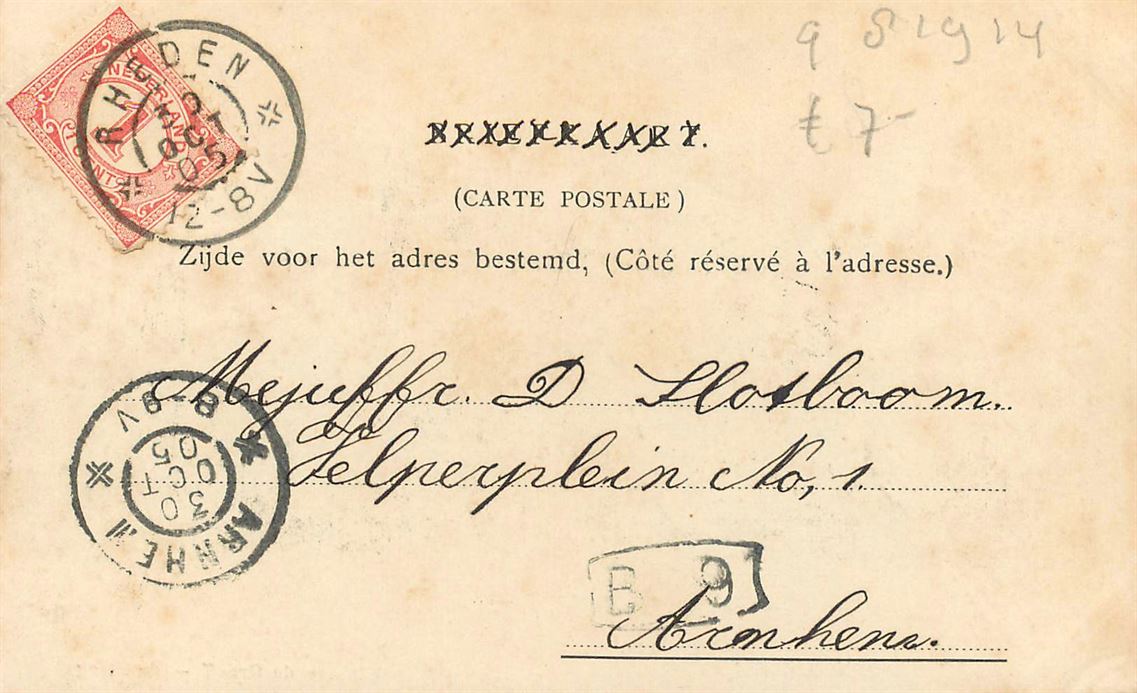 9 51914
£ 7-
RHEDEN
OCT
05
12-8V
NEDERLAND
1
CENT
BRIEFKAART.
(CARTE POSTALE)
Zijde voor het adres bestemd, (Côté réservé à l'adresse.)
Mejuffr. D Slotboom.
Velperplein No, 1.
ARNHEM
30
OCT
05
8-9V
B 9
Arnhem.